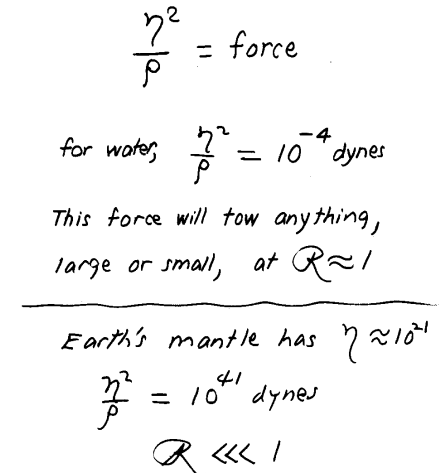 η²/ρ = force
for water, η²/ρ = 10⁻⁴ dynes
This force will tow anything,
large or small, at R ≈ 1
Earth's mantle has η ≈ 10²¹
η²/ρ = 10⁴¹ dynes
R <<< 1